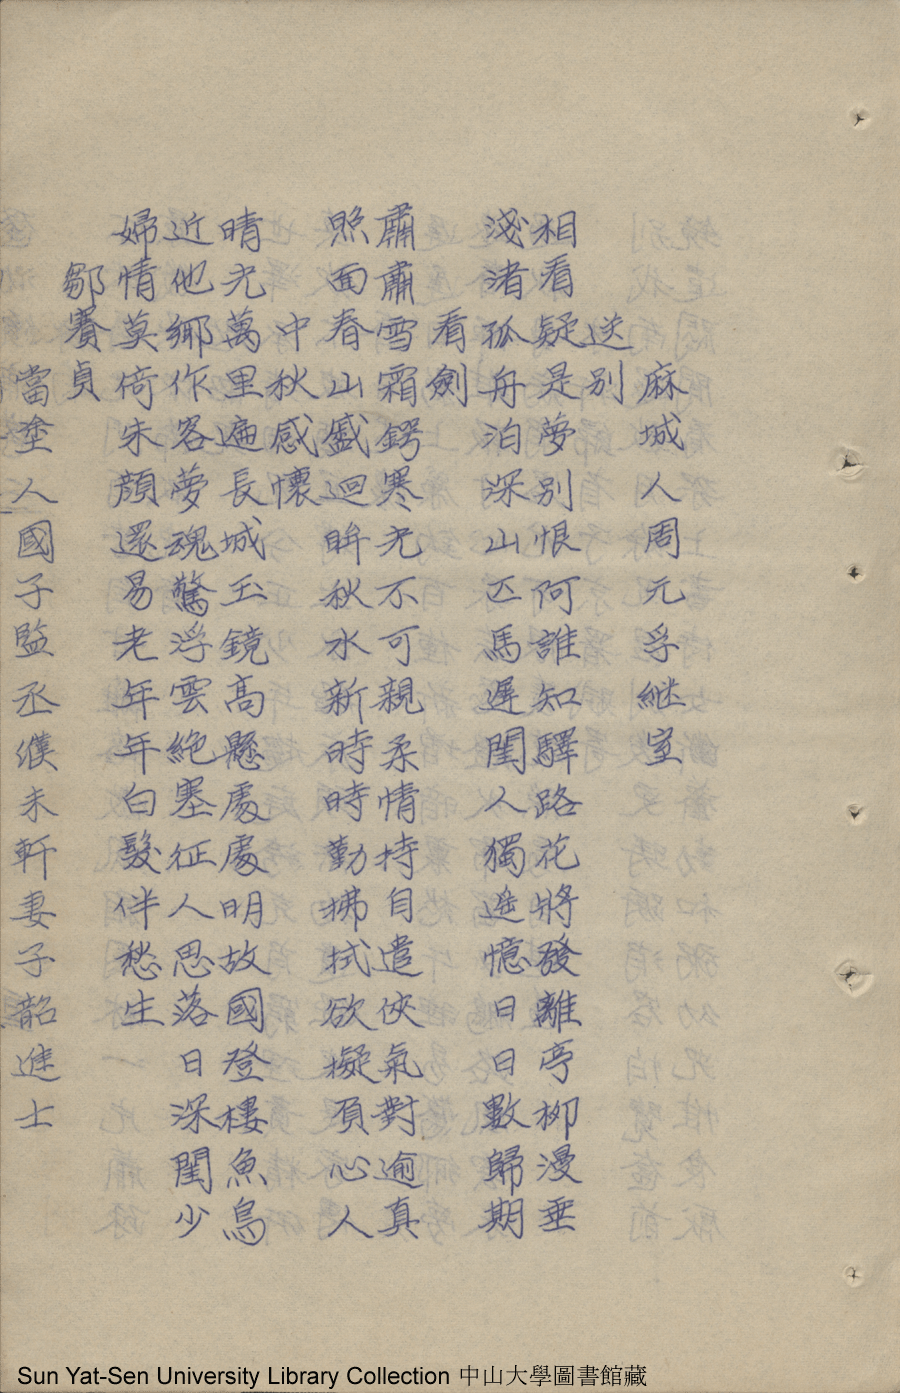 麻城人周元孚継室
送別
相看疑是夢別恨何誰知驛路花將發離亭柳漫垂
淺渚孤舟泊深山匹馬遲閨人獨遥憶日日數歸期
看劍
肅肅雪霜鍔寒光不可親柔情持自遣俠氣對逾真
照面春山蹙迴眸秋水新時時勤拂拭欲擬負心人
中秋感懷
晴光萬里遍長城玉鏡高懸處處明故國登樓魚鳥
近他鄉作客夢魂驚浮雲絕塞征人思落日深閨少
婦情莫倚朱顏還易老年年白髮伴愁生
鄒賽貞
當塗人國子監丞濮未軒妻子韶進士
Sun Yat-Sen University Library Collection 中山大學圖書館藏